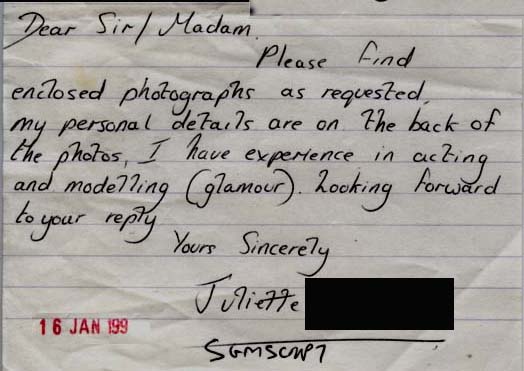 Dear Sir/Madam.
Please find
enclosed photographs as requested,
my personal details are on the back of
the photos, I have experience in acting
and modelling (glamour). Looking forward
to your reply
Yours Sincerely
Juliette
16 JAN 199